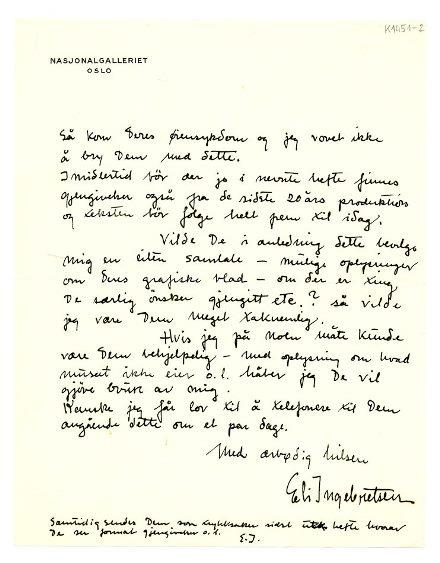 K1451-2
NASJONALGALLERIET
OSLO
Så kom Deres øiensykdom og jeg vovet ikke
å bry Dem med dette.
Imidlertid bör der jo i nevnte hefte finnes
gjengivelser også fra de sidste 20 års produktions
og teksten bör følge helt frem til idag.
Vilde De i anledning dette bevilge
mig en liten samtale – mulige oplysninger
om Deres grafiske blad – om der er ting
De særlig ønsker gjengitt etc.? så vilde
jeg være Dem meget taknemlig.
Hvis jeg på noen måte kunde
være Dem behjelpelig – med oplysning om hvad
museet ikke eier o.l. håber jeg De vil
gjöre bruk av mig.
Kanske jeg får lov til å telefonere til Dem
angående dette om et par dage.
Med ærbødig hilsen
Eli Ingebretsen
Samtidig sendes Dem som tryksaker sidst hefte hvorav
De ser format gjengivelser o.l.
E.I.